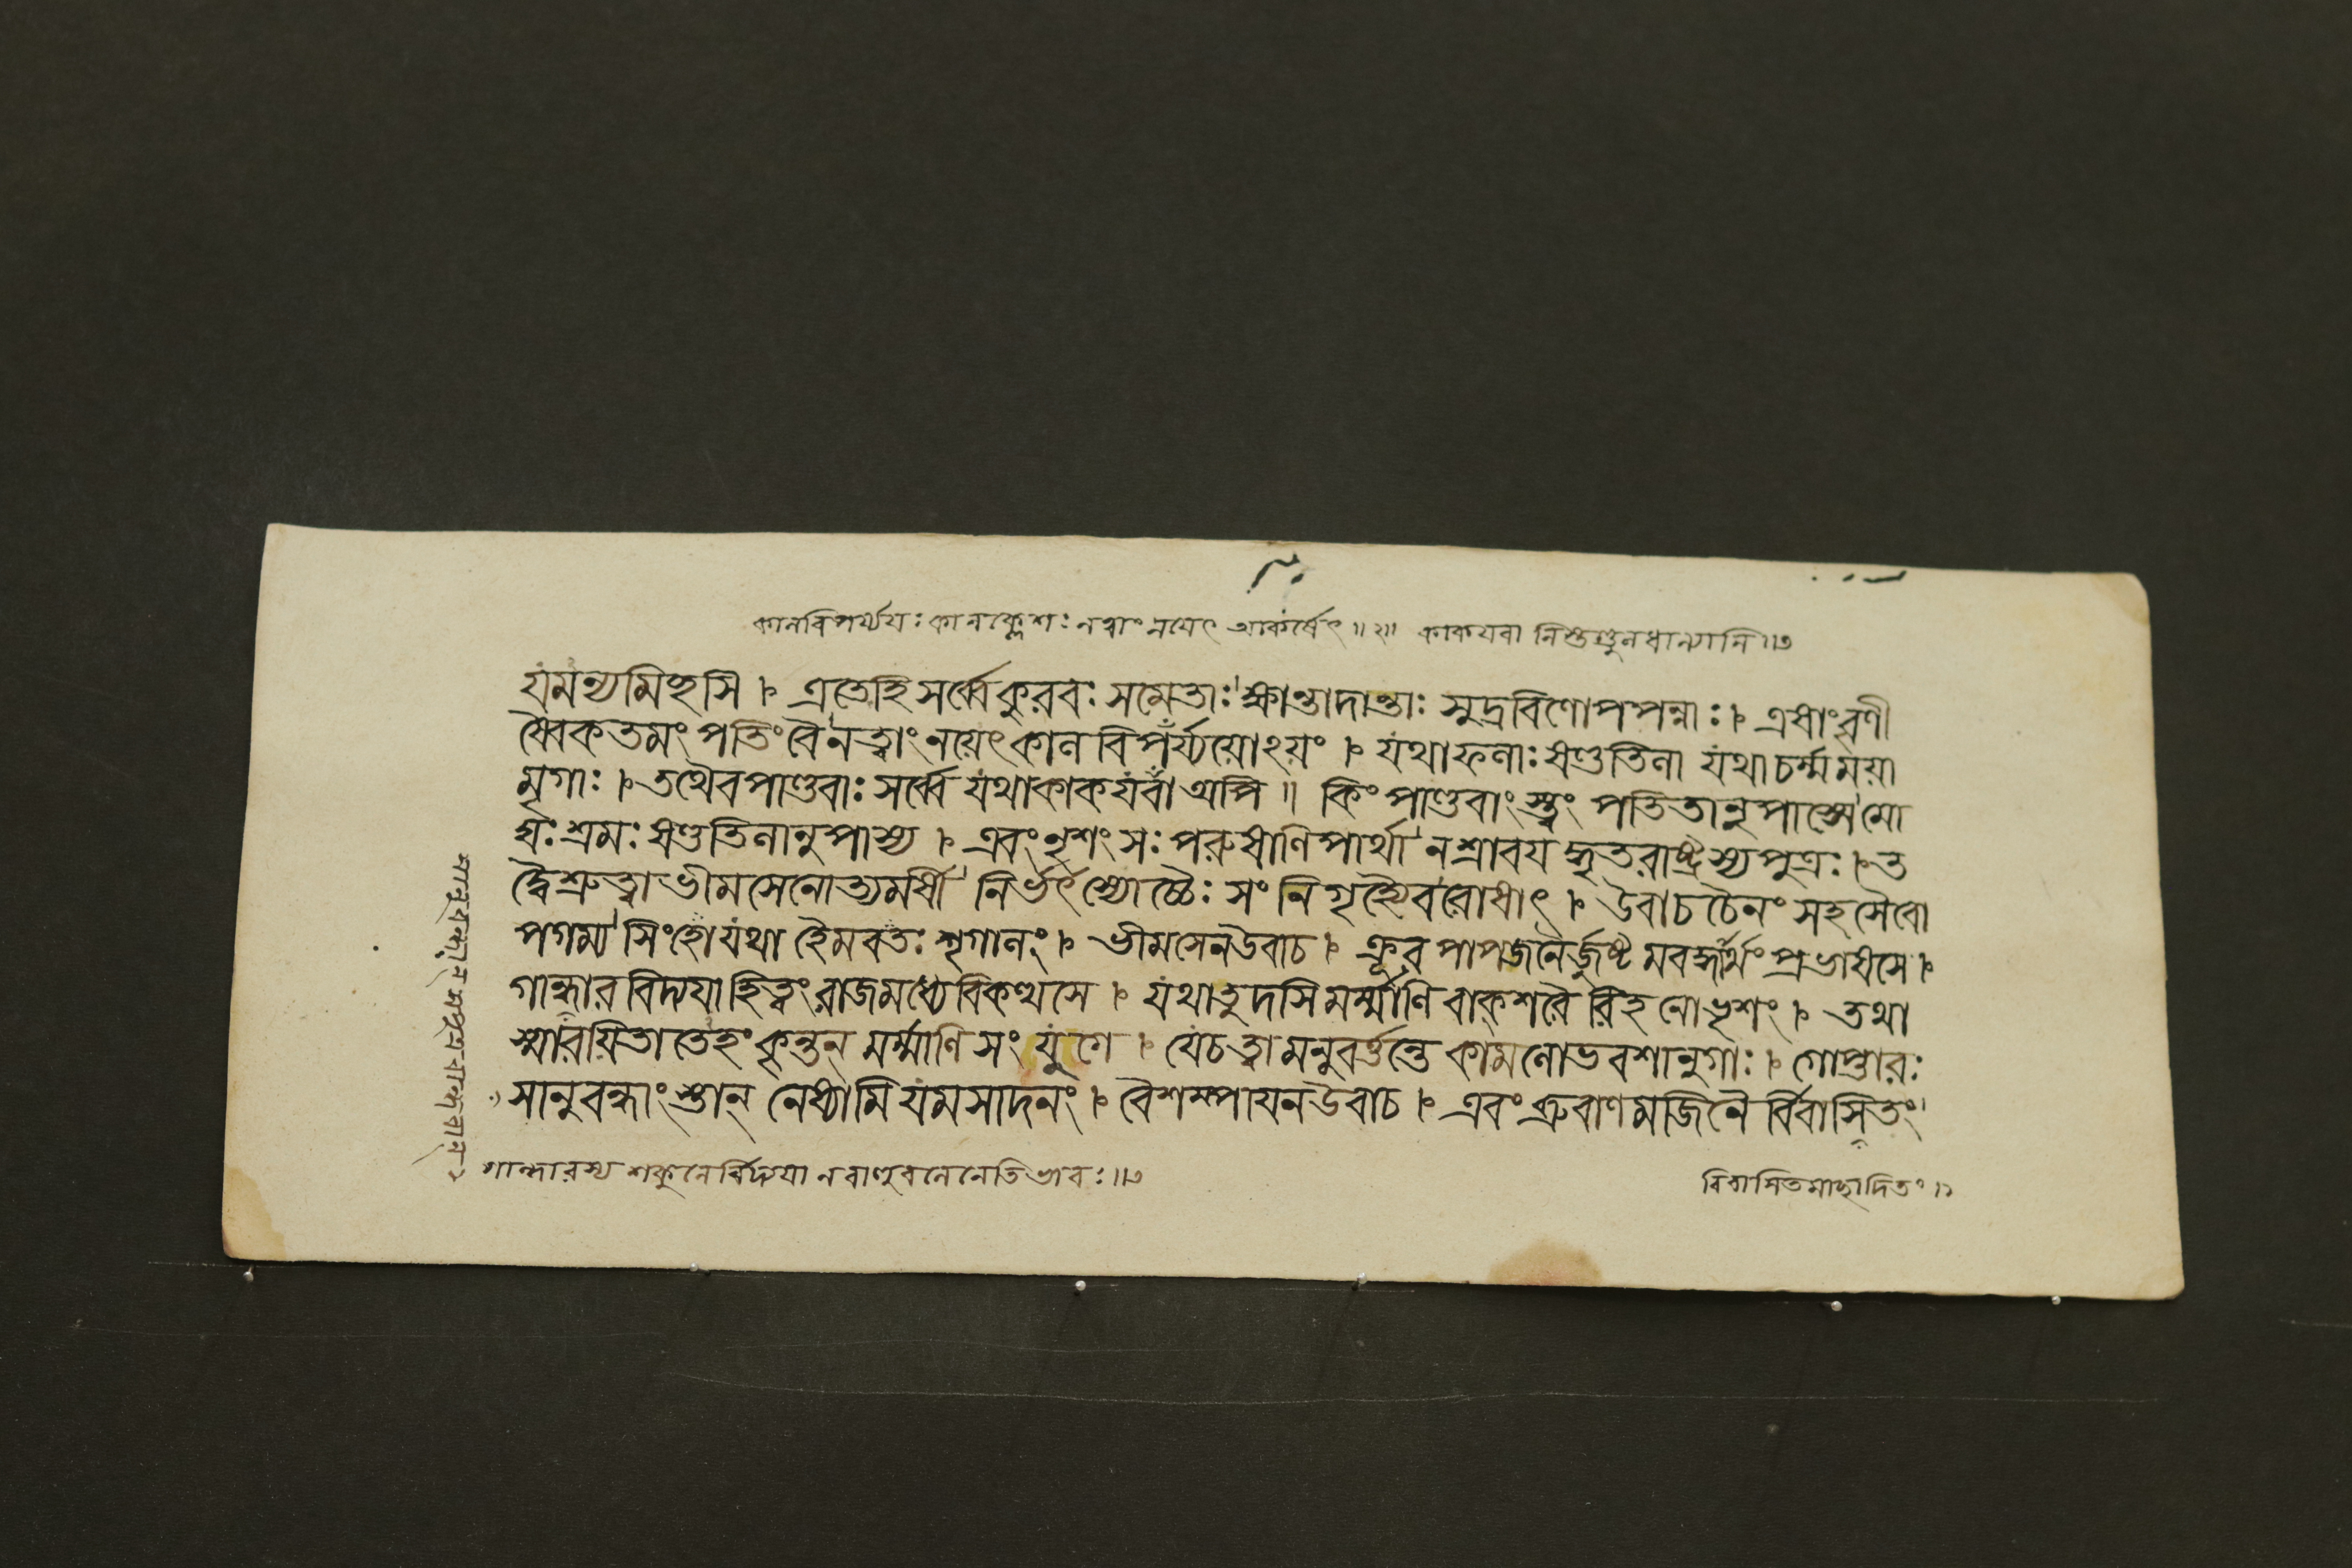 কালবিপর্য্যয়ঃ কালক্লেশঃ নত্বাং নয়েৎ আকর্ষেৎ ॥২॥ কাকযবা নিস্তণ্ডুলধান্যানি ॥৩
যমন্যমিহসি । এতেহি সর্ব্বে কুরবঃ সমেতাঃ ক্ষান্তাদান্তাঃ সুদ্রবিণোপপন্নাঃ । এষাংবৃণী
ষ্বৈকতমং পতিং বৈ নত্বাং নয়েৎ কাল বিপর্য্যয়োঽয়ং । যথাফলাঃ ষণ্ডতিলা যথাচর্ম্মময়া
মৃগাঃ । তথৈবপাণ্ডবাঃ সর্ব্বে যথাকাকযবা অপি ॥ কিং পাণ্ডবাংস্ত্বং পতিতানুপাস্সে মো
ঘঃ শ্রমঃ ষণ্ডতিলানুপাস্য । এবং নৃশংসঃ পরুষাণিপার্থা নশ্রাবয দ্ধৃতরাষ্ট্রস্যপুত্রঃ । ত
দ্বৈশ্রুত্বা ভীমসেনোত্যমর্ষী নির্ভর্ৎস্যোচ্চৈঃ সংনিগৃহ্যৈবরোষাৎ । উবাচ চৈনং সহসৈবো
পগম্য সিংহোযথা হৈমবতঃ শৃগালং । ভীমসেনউবাচ । ক্রূর পাপজনৈর্জুষ্ট মবদ্ধার্থং প্রভাষসে ।
গান্ধারবিদ্যযাহিত্বং রাজমধ্যেবিকত্থসে । যথাতুদসি মর্ম্মাণি বাক্শরৈ রিহ নোভৃশং । তথা
স্মারয়িতা তেহং কৃন্তন্ মর্ম্মাণি সংযুগে । যেচত্বামনুবর্ত্তন্তে কামলোভবশানুগাঃ । গোপ্তারঃ
সানুবন্ধাংস্তান্ নেষ্যামি যমসাদনং । বৈশম্পাযনউবাচ । এবং ব্রুবাণমজিনৈ র্বিবাসিতং
গান্ধারস্য শকুনের্বিদ্যযা ন বাণুবলেনেতি ভাবঃ ॥৩
বিবাসিতমাচ্ছাদিতং ॥১